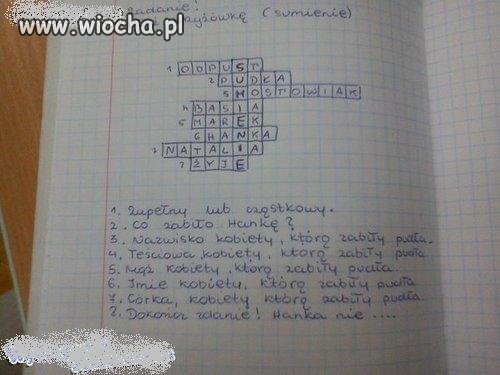 www.wiocha.pl
zadanie!
krzyżówkę (sumienie)
1 ODPUST
2 PUDŁA
3 MOSTOWIAK
4 BASIA
5 MAREK
6 HANKA
7 NATALIA
? ŻYJE
1. Zupełny lub cząstkowy.
2. Co zabiło Hankę?
3. Nazwisko kobiety, którą zabiły pudła.
4. Teściowa kobiety, którą zabiły pudła
5. Mąż kobiety, którą zabiły pudła.
6. Imie kobiety, którą zabiły pudła
7. Córka, kobiety którą zabiły pudła.
?. Dokończ zdanie! Hanka nie ....